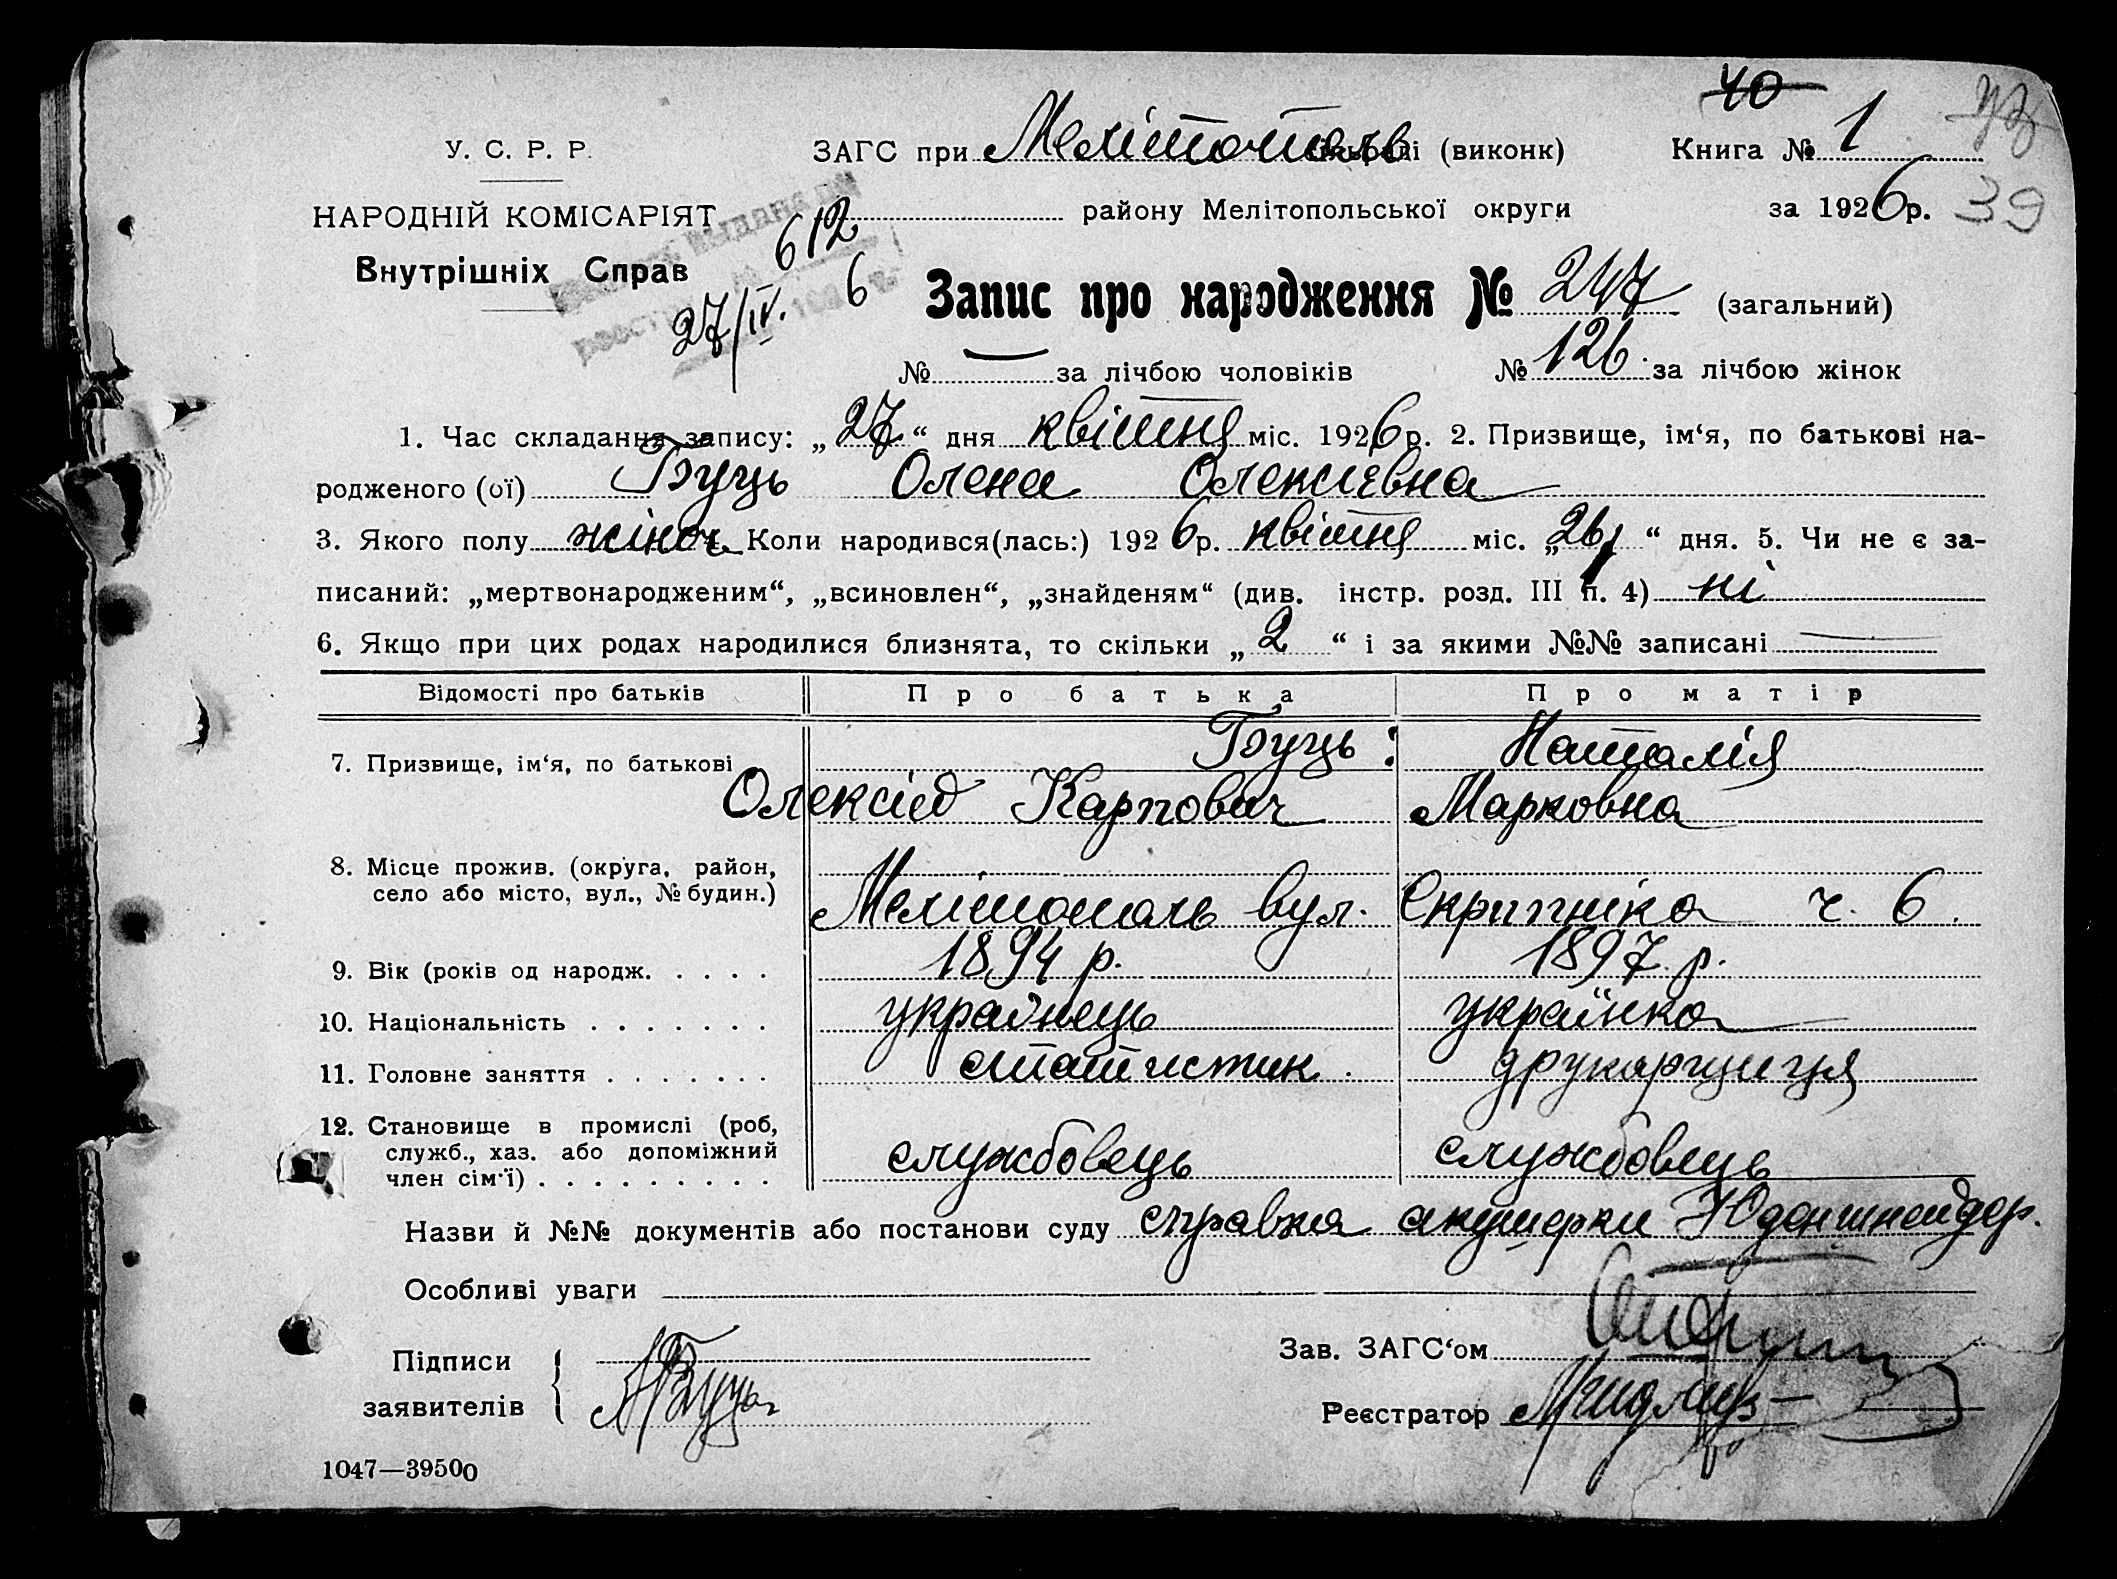 40
У. С. Р. Р. ЗАГС при Мелітополь сільраді (виконк) Книга № 1
НАРОДНІЙ КОМІСАРІЯТ району Мелітопольської округи за 1926 р. 39
Внутрішніх Справ
612
27/IV. 6
Запис про народження № 247 (загальний)
№ — за лічбою чоловіків № 126 за лічбою жінок
1. Час складання запису: „27“ дня квітня міс. 1926 р. 2. Призвище, ім‘я, по батькові на-
родженого (ої) Буць Олена Олексієвна
3. Якого полу жіноч. Коли народився(лась:) 1926 р. квітня міс. „26“ дня. 5. Чи не є за-
писаний: „мертвонародженим“, „всиновлен“, „знайденям“ (див. інстр. розд. III п. 4) ні
6. Якщо при цих родах народилися близнята, то скільки „2“ і за якими №№ записані —
Відомості про батьків Про батька Про матір
7. Призвище, ім‘я, по батькові Буць: Наталія
Олексій Карпович Марковна
8. Місце прожив. (округа, район,
село або місто, вул., № будин.) Мелітополь вул. Скрипніка ч. 6.
9. Вік (років од народж. . . . . 1894 р. 1897 р.
10. Національність . . . . . . . українець українка
11. Головне заняття . . . . . . . статистик друкарщиця
12. Становище в промислі (роб,
служб., хаз. або допоміжний службовець службовець
член сім‘ї) . . . . . . . . .
Назви й №№ документів або постанови суду справка акушерки Юденшнейдер.
Особливі уваги
Підписи Зав. ЗАГС‘ом
заявителів АБуць Реєстратор
1047—39500